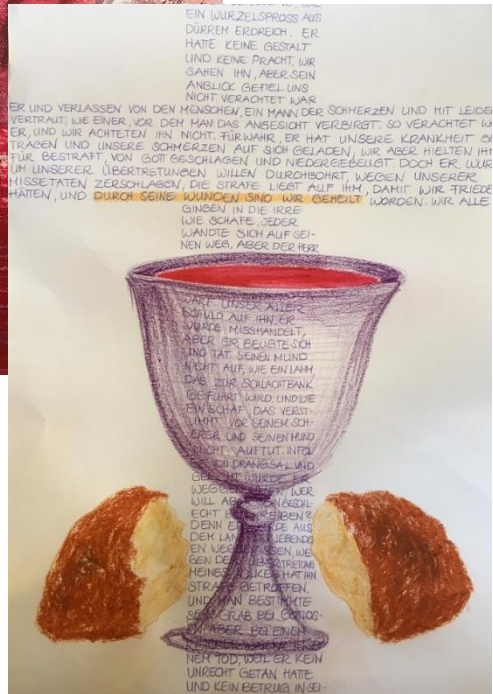 EIN WURZELSPROSS AUS
DÜRREM ERDREICH. ER
HATTE KEINE GESTALT
UND KEINE PRACHT, WIR
SAHEN IHN, ABER SEIN
ANBLICK GEFIEL UNS
NICHT VERACHTET WAR
ER UND VERLASSEN VON DEN MENSCHEN, EIN MANN DER SCHMERZEN UND MIT LEIDEN
VERTRAUT, WIE EINER, VOR DEM MAN DAS ANGESICHT VERBIRGT, SO VERACHTET WAR
ER, UND WIR ACHTETEN IHN NICHT. FÜRWAHR, ER HAT UNSERE KRANKHEIT GE-
TRAGEN UND UNSERE SCHMERZEN AUF SICH GELADEN, WIR ABER HIELTEN IHN
FÜR BESTRAFT, VON GOTT GESCHLAGEN UND NIEDERGEBEUGT DOCH ER WURDE
UM UNSERER ÜBERTRETUNGEN WILLEN DURCHBOHRT, WEGEN UNSERER
MISSETATEN ZERSCHLAGEN, DIE STRAFE LIEGT AUF IHM, DAMIT WIR FRIEDEN
HÄTTEN, UND DURCH SEINE WUNDEN SIND WIR GEHEILT WORDEN. WIR ALLE
GINGEN IN DIE IRRE
WIE SCHAFE, JEDER
WANDTE SICH AUF SEI-
NEN WEG, ABER DER HERR
WARF UNSER ALLER
SCHULD AUF IHN. ER
WURDE MISSHANDELT,
ABER ER BEUGTE SICH
UND TAT SEINEN MUND
NICHT AUF, WIE EIN LAMM,
DAS ZUR SCHLACHTBANK
GEFÜHRT WIRD, UND WIE
EIN SCHAF, DAS VERST-
UMMT VOR SEINEM SCH-
ERER UND SEINEN MUND
NICHT AUFTUT. INFOL
VON DRANGSAL UND
WURDE
WER
WILL
ECHT
DENN
DEM
EN
GEN
MEINES VOLKES HAT IHN
STRAFE GETROFFEN.
UND MAN BESTIMMTE
GRAB BEI
ABER BEI EINEM
NEM TOD, WEIL ER KEIN
UNRECHT GETAN HATTE
UND KEIN BETRUG IN SEI-